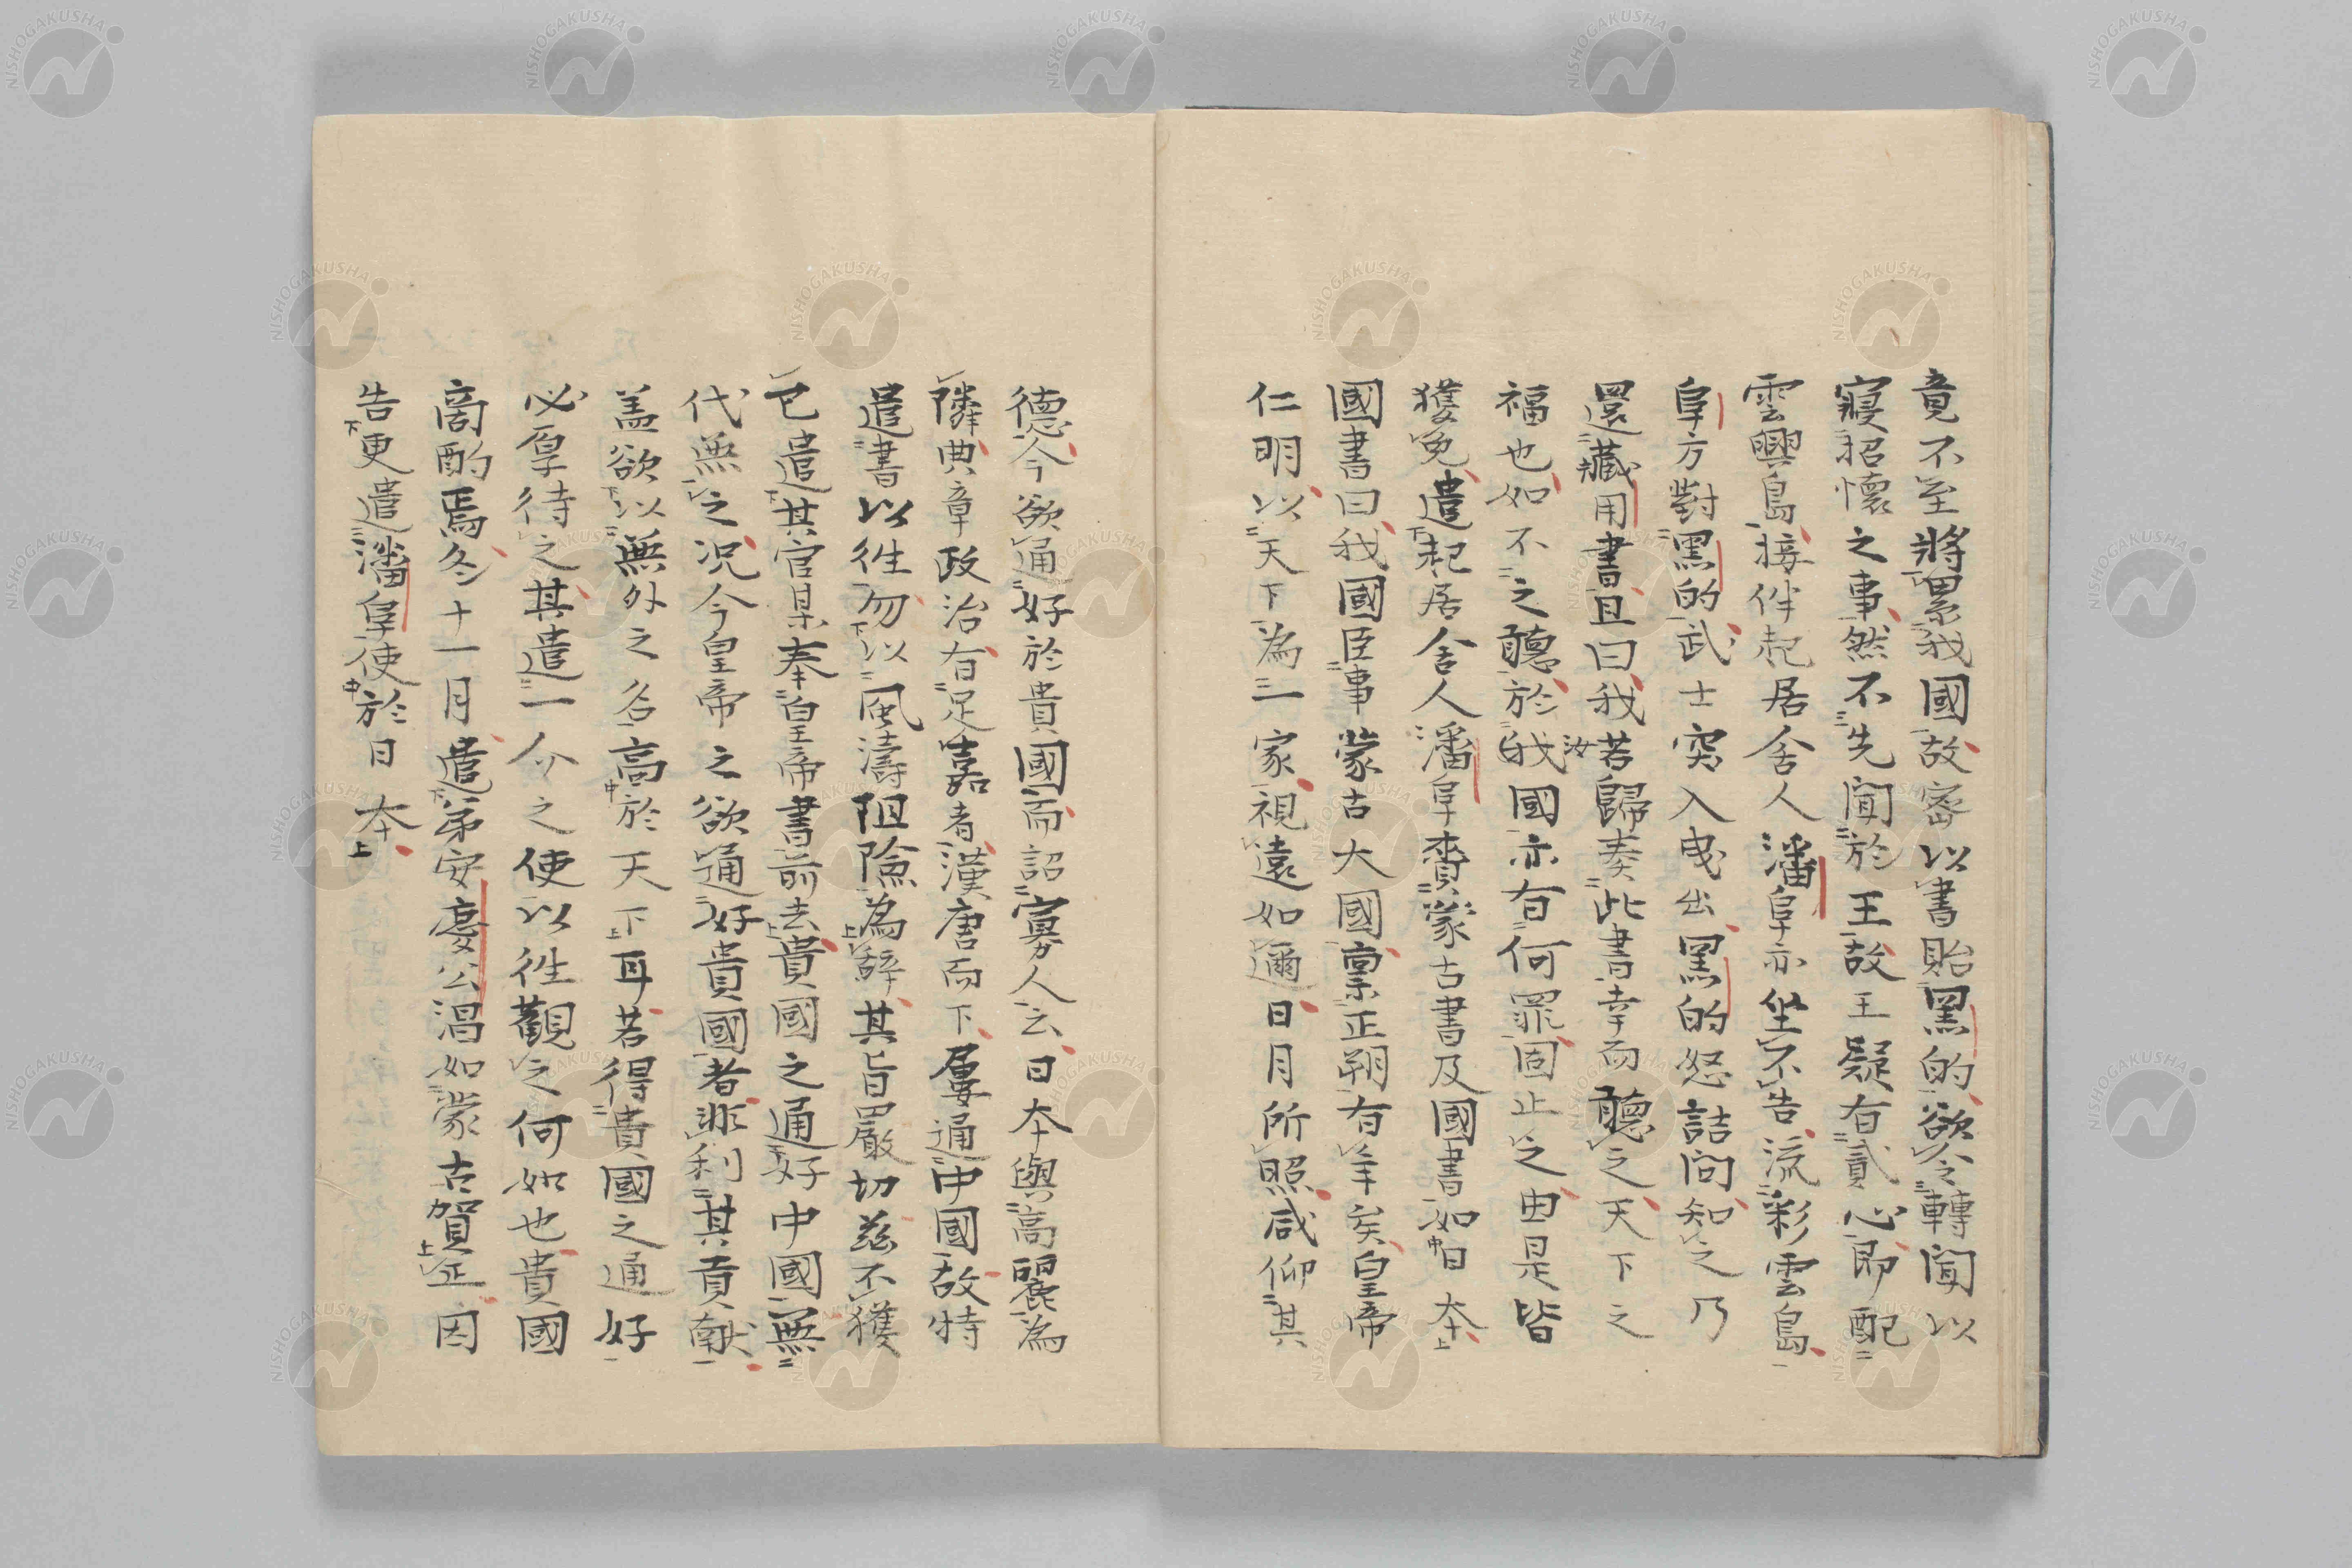 竟不至將累我國故密以書貽黑的欲令轉聞以
寢招懷之事然不先聞於王故王疑有貳心即配
雲興島接伴起居舍人潘阜亦坐不告流彩雲島
阜方對黑的武士突入曳出黑的怒詰問知之乃
還藏用書且曰我若歸奏此書幸而聽之天下之
福也如不之聽於汝國亦有何罪固止之由是皆
獲免遣起居舍人潘阜賷蒙古書及國書如日本
國書曰我國臣事蒙古大國稟正朔有年矣皇帝
仁明以天下為一家視遠如邇日月所照咸仰其
德今欲通好於貴國而詔寡人云日本與高麗為
隣典章政治有足嘉者漢唐而下屢通中國故特
遣書以徃勿以風濤阻險為辭其旨嚴切茲不獲
已遣其官某奉皇帝書前去貴國之通好中國無
代無之况今皇帝之欲通好貴國者非利其貢献
盖欲以無外之名高於天下耳若得貴國之通好
必厚待之其遣一介之使以徃觀之何如也貴國
商酌焉冬十一月遣弟安慶公淐如蒙古賀正因
告更遣潘阜使於日本
NISHOGAKUSHA